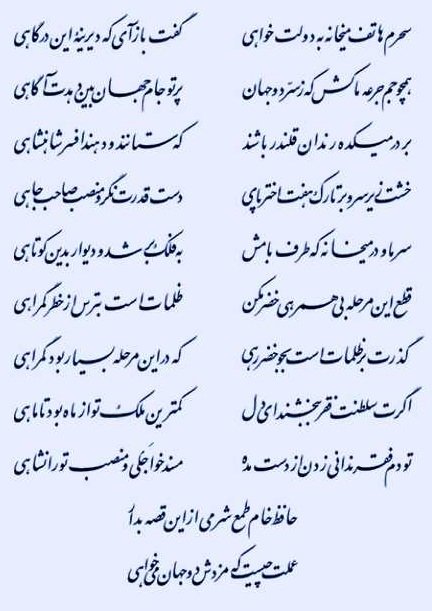 سحرم هاتف میخانه به دولت خواهی گفت باز آی که دیرینهٔ این درگاهی
همچو جم جرعه ما کش که ز سر دو جهان پرتو جام جهان بین دهدت آگاهی
بر در میکده رندان قلندر باشند که ستانند و دهند افسر شاهنشاهی
خشت زیر سر و بر تارک هفت اختر پای دست قدرت نگر و منصب صاحب جاهی
سر ما و در میخانه که طرف بامش به فلک بر شد و دیوار بدین کوتاهی
قطع این مرحله بی همرهی خضر مکن ظلمات است بترس از خطر گمراهی
گذرت بر ظلمات است بجو خضر رهی که در این مرحله بسیار بود گمراهی
اگرت سلطنت فقر ببخشند ای دل کمترین ملک تو از ماه بود تا ماهی
تو دم فقر ندانی زدن از دست مده مسند خواجگی و منصب تورانشاهی
حافظ خام طمع شرمی از این قصه بدار
عملت چیست که مزدش دو جهان می‌خواهی